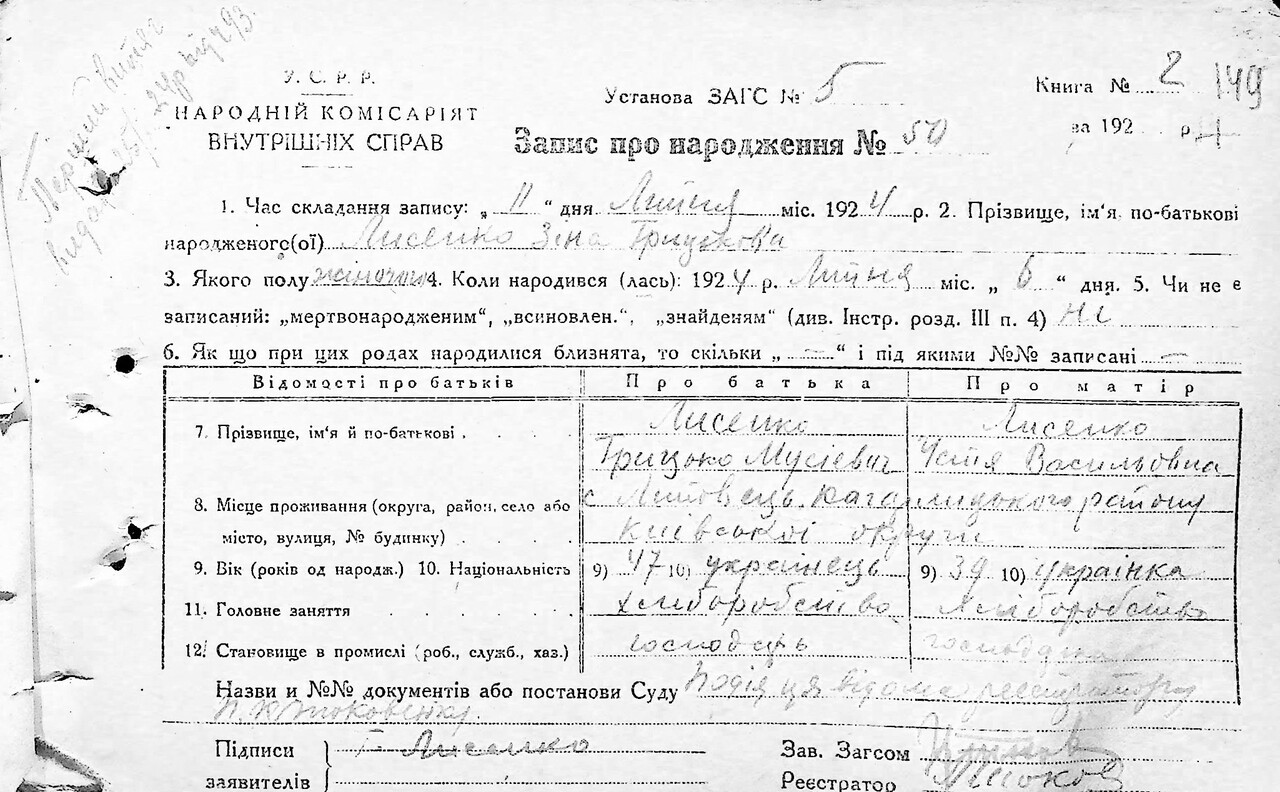 Перший витяг
видано
У. С. Р. Р.
НАРОДНІЙ КОМІСАРІЯТ
ВНУТРІШНІХ СПРАВ
Установа ЗАГС № 5
Книга № 2 149
за 192 4 р.
Запис про народження № 50
1. Час складання запису: „ 11 “ дня Липня міс. 1924 р. 2. Прізвище, ім'я, по-батькові
народженого(ої) Лисенко Зіна Грицькова
3. Якого полу жіночого 4. Коли народився (лась): 1924 р. Липня міс. „ 6 “ дня. 5. Чи не є
записаний: „мертвонародженим“, „всиновлен.“, „знайденям“ (див. Інстр. розд. III п. 4) Ні
6. Як що при цих родах народилися близнята, то скільки „ — “ і під якими №№ записані —
Відомості про батьків Про батька Про матір
7. Прізвище, ім'я й по-батькові . Лисенко Лисенко
Грицько Мусієвич Устя Васильовна
8. Місце проживання (округа, район, село або с Липовець Кагарлицького району
місто, вулиця, № будинку) Київської округи
9. Вік (років од народж.) 10. Національність 9) 47 10) українець 9) 39 10) українка
11. Головне заняття хліборобство хліборобство
12. Становище в промислі (роб., служб., хаз.) господарь господарка
Назви и №№ документів або постанови Суду Подія ця відома реєстратору
Підписи Г Лисенко Зав. Загсом
заявителів Реєстратор